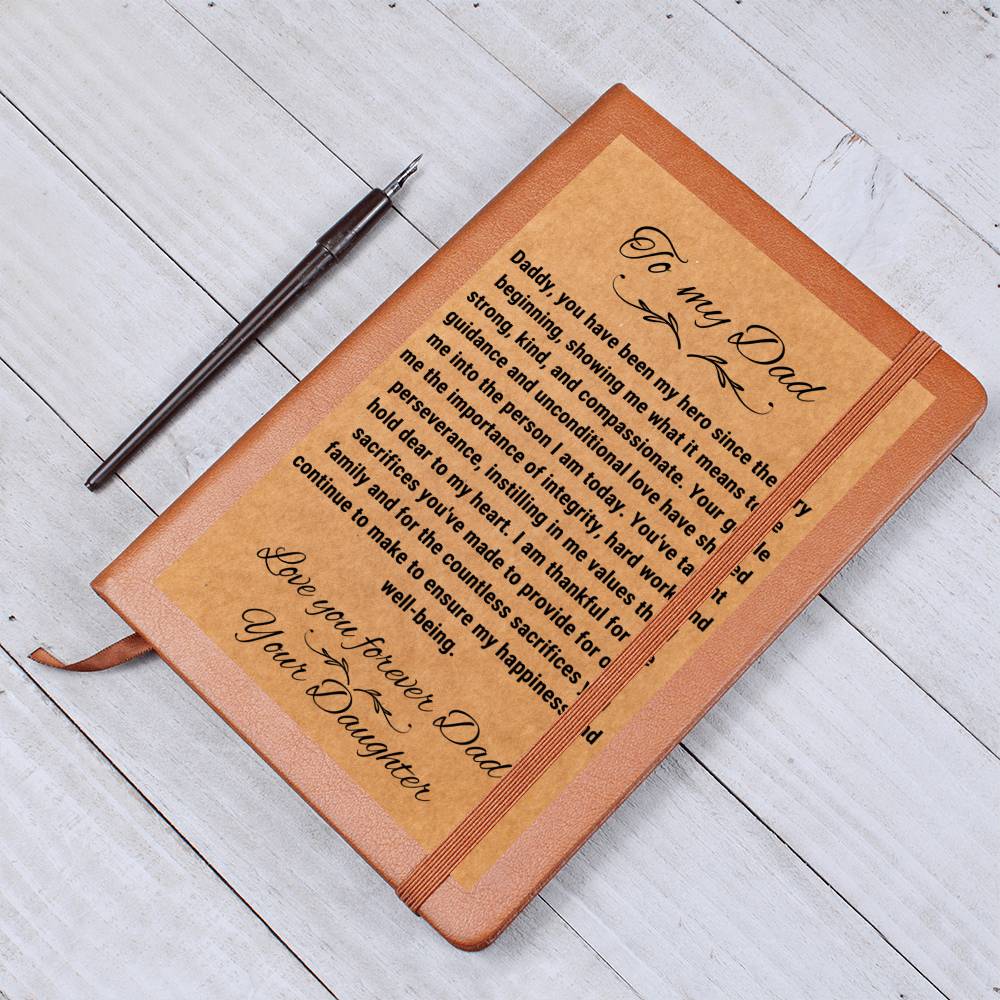 To my Dad
Daddy, you have been my hero since the very
beginning, showing me what it means to be
strong, kind, and compassionate. Your gentle
guidance and unconditional love have shaped
me into the person I am today. You've taught
me the importance of integrity, hard work, and
perseverance, instilling in me values
hold dear to my heart. I am thankful for
sacrifices you've made to provide for our
family and for the countless sacrifices
continue to make to ensure my happiness and
well-being.
Love you forever Dad
Your Daughter